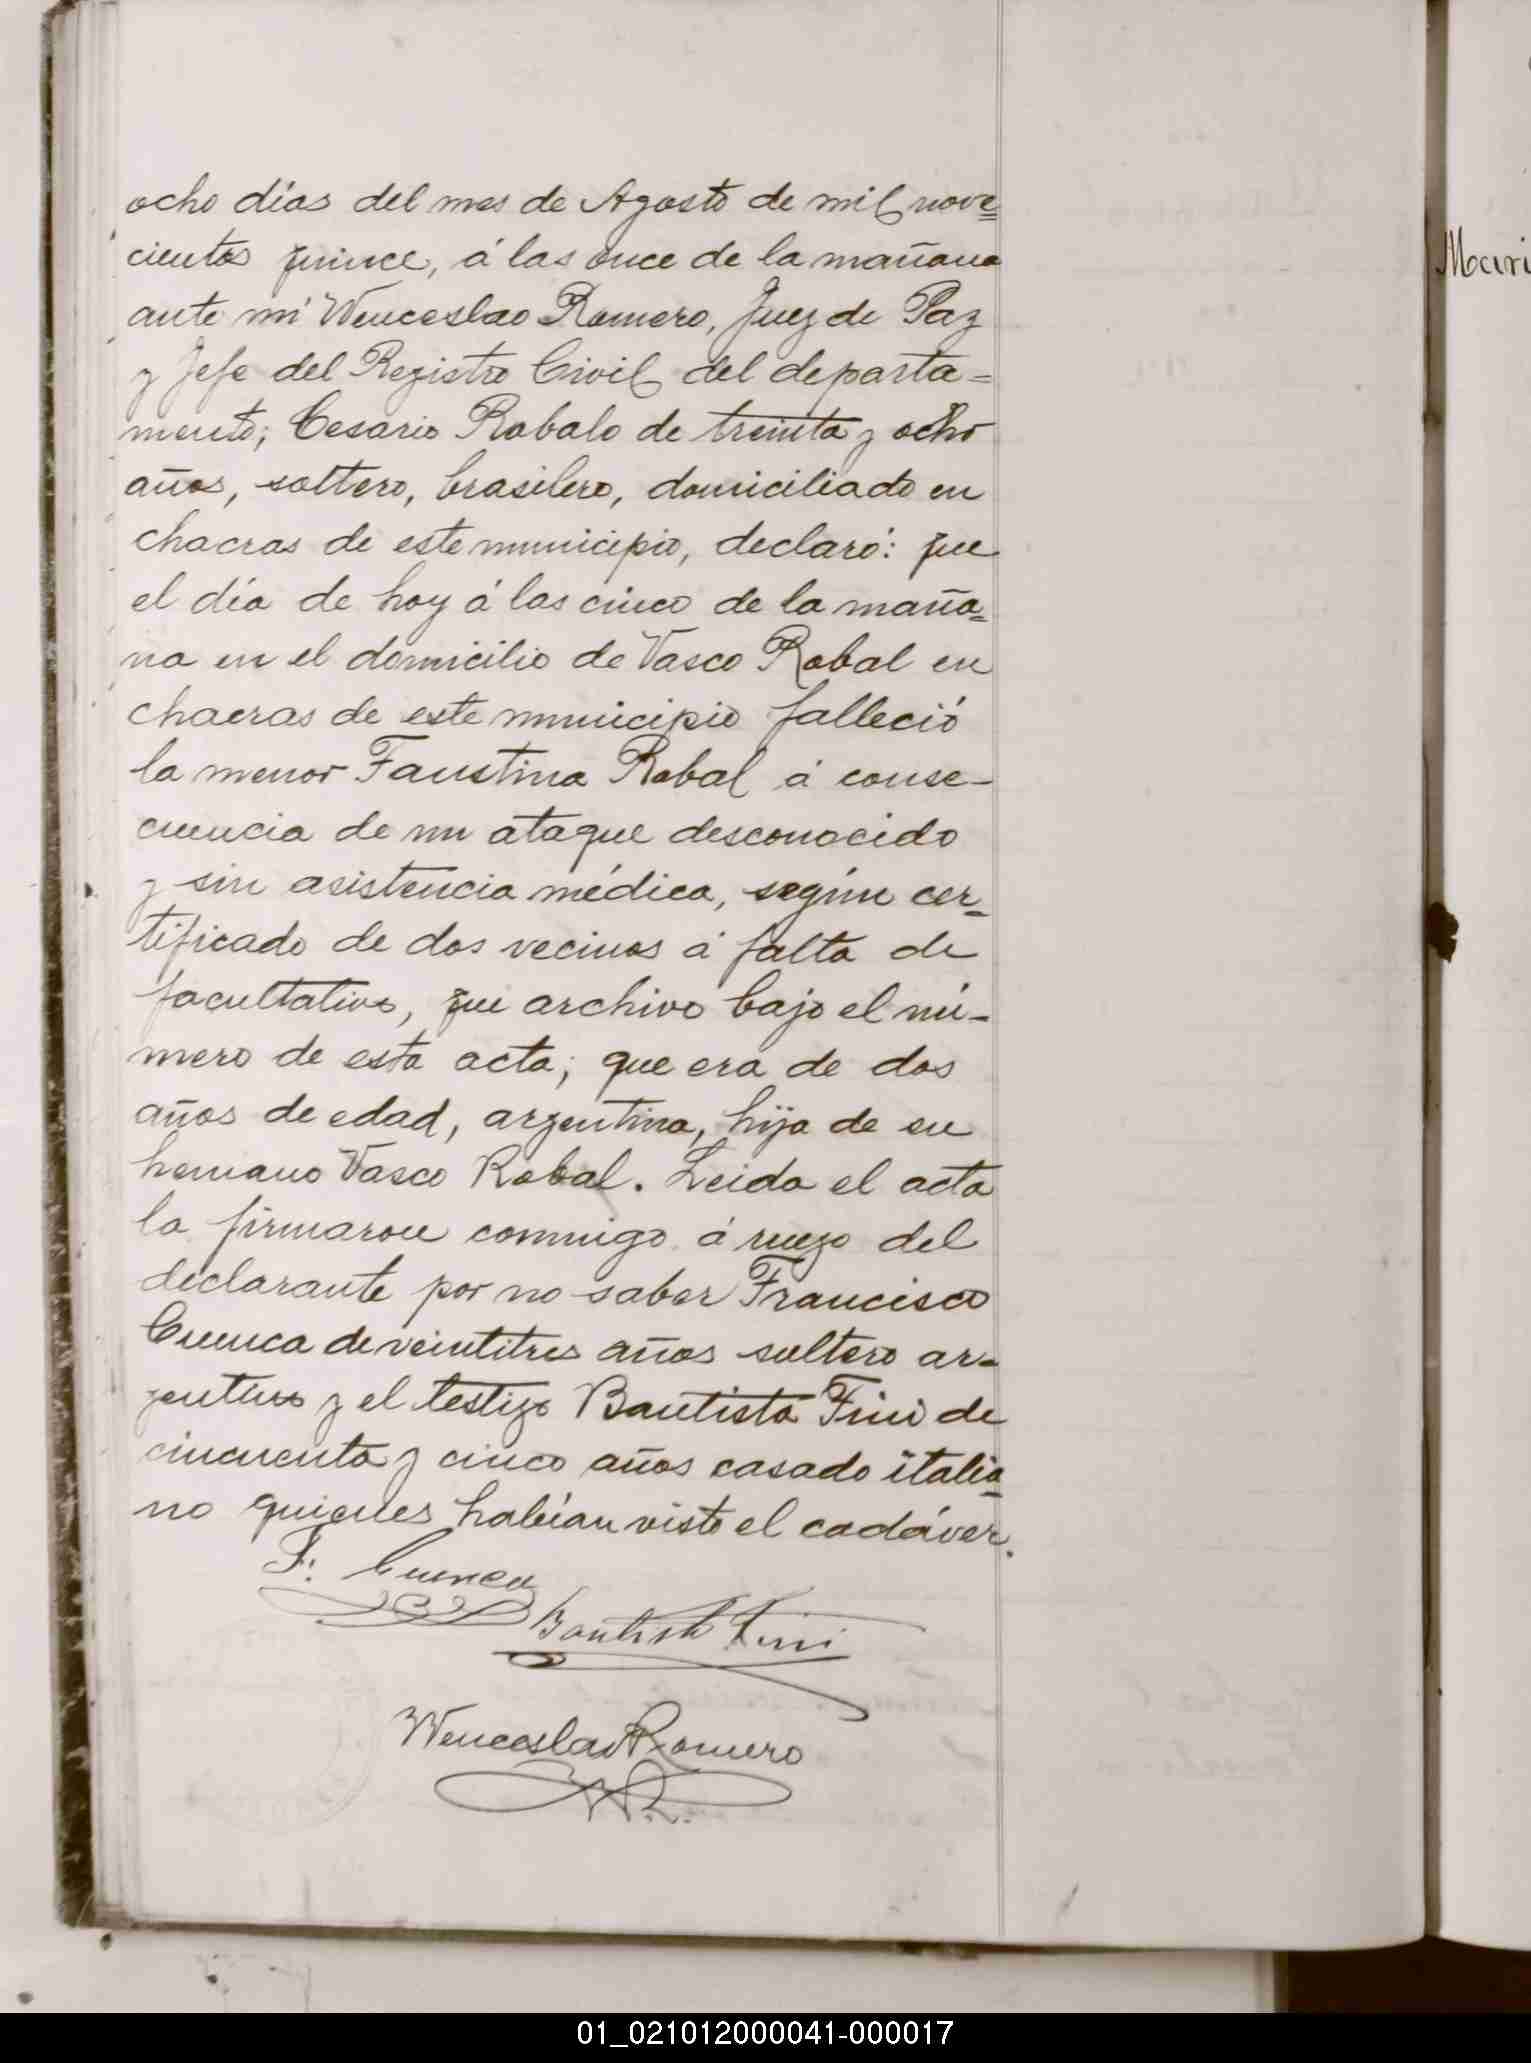 ocho días del mes de Agosto de mil nove=
cientos quince, á las once de la mañana
ante mi Wenceslao Romero, Juez de Paz
y Jefe del Registro Civil del departa=
mento; Cesario Robalo de treinta y ocho
años, soltero, brasilero, domiciliado en
chacras de este municipio, declaró: que
el día de hoy á las cinco de la maña=
na en el domicilio de Vasco Robal en
chacras de este municipio falleció
la menor Faustina Robal á conse-
cuencia de un ataque desconocido
y sin asistencia médica, según cer=
tificado de dos vecinos á falta de
facultativo, que archivo bajo el nú-
mero de esta acta; que era de dos
años de edad, argentina, hija de su
hermano Vasco Robal. Leida el acta
la firmaron conmigo á ruego del
declarante por no saber Francisco
Cuenca de veintitres años soltero ar=
gentino y el testigo Bautista Fini de
cincuenta y cinco años casado italia=
no quienes habían visto el cadáver.
F. Cuenca
Bautista Fini
Wenceslao Romero
W.R.
Mari
01_021012000041-000017